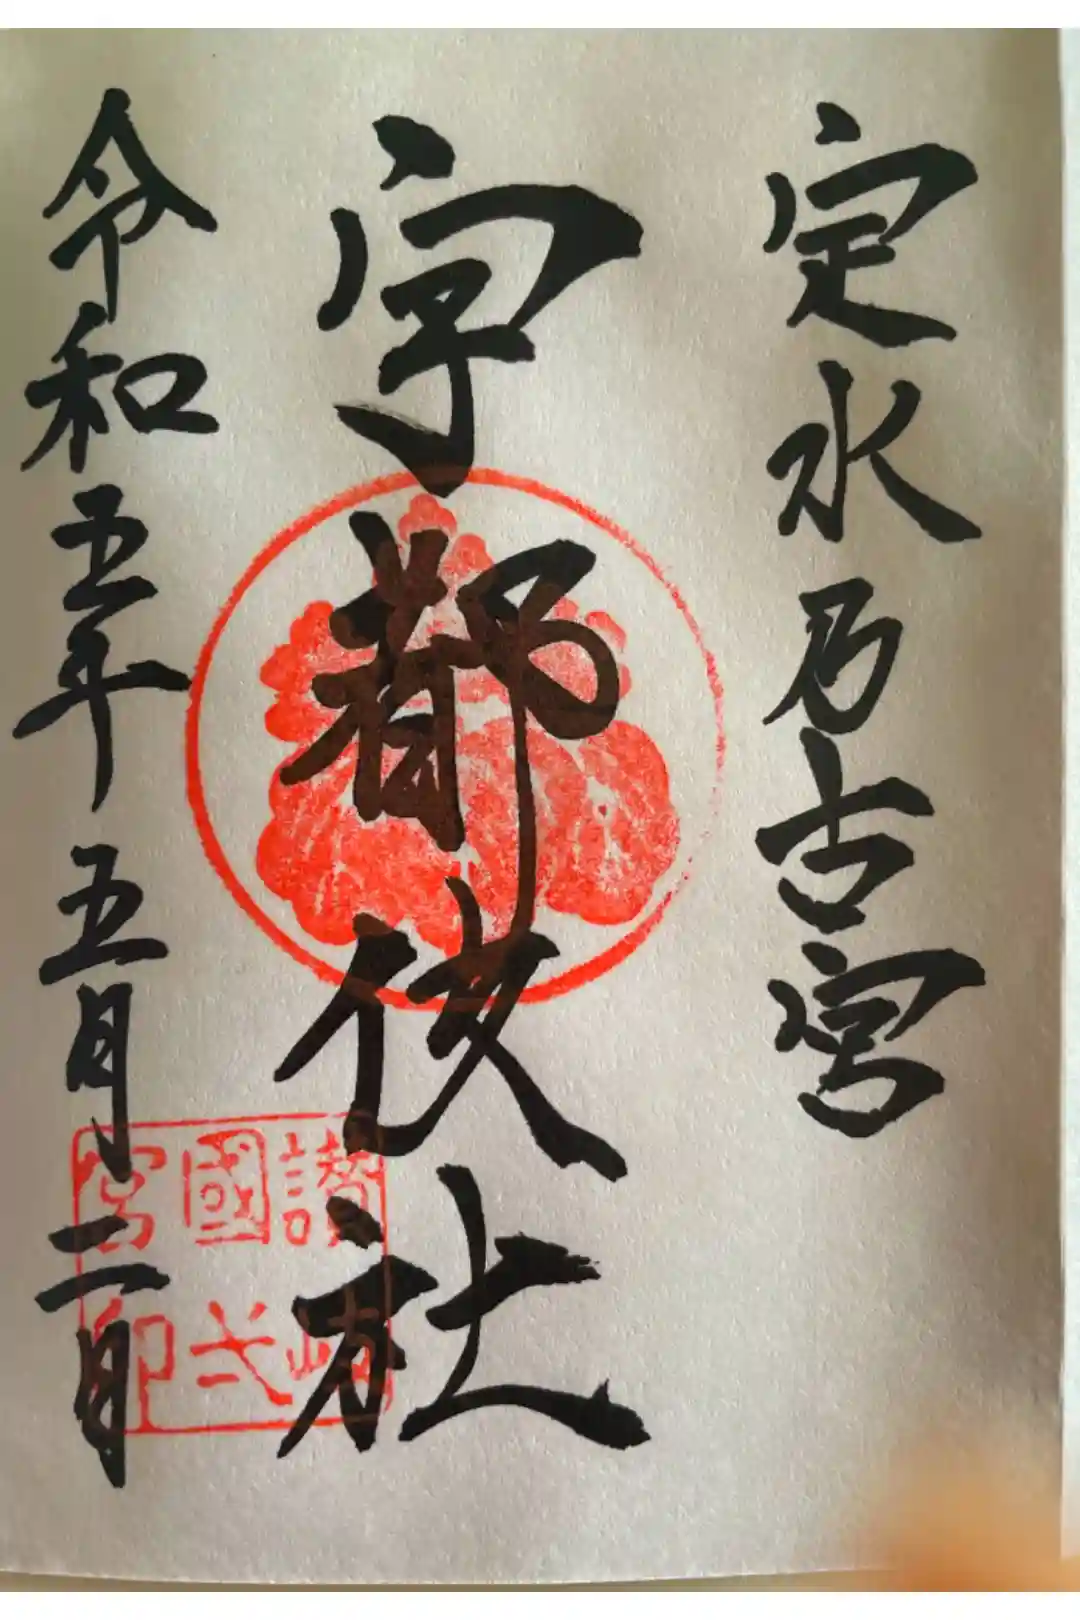 定水乃古宮
宇都伎社
令和五年五月二日
讃岐
國弍
宮印